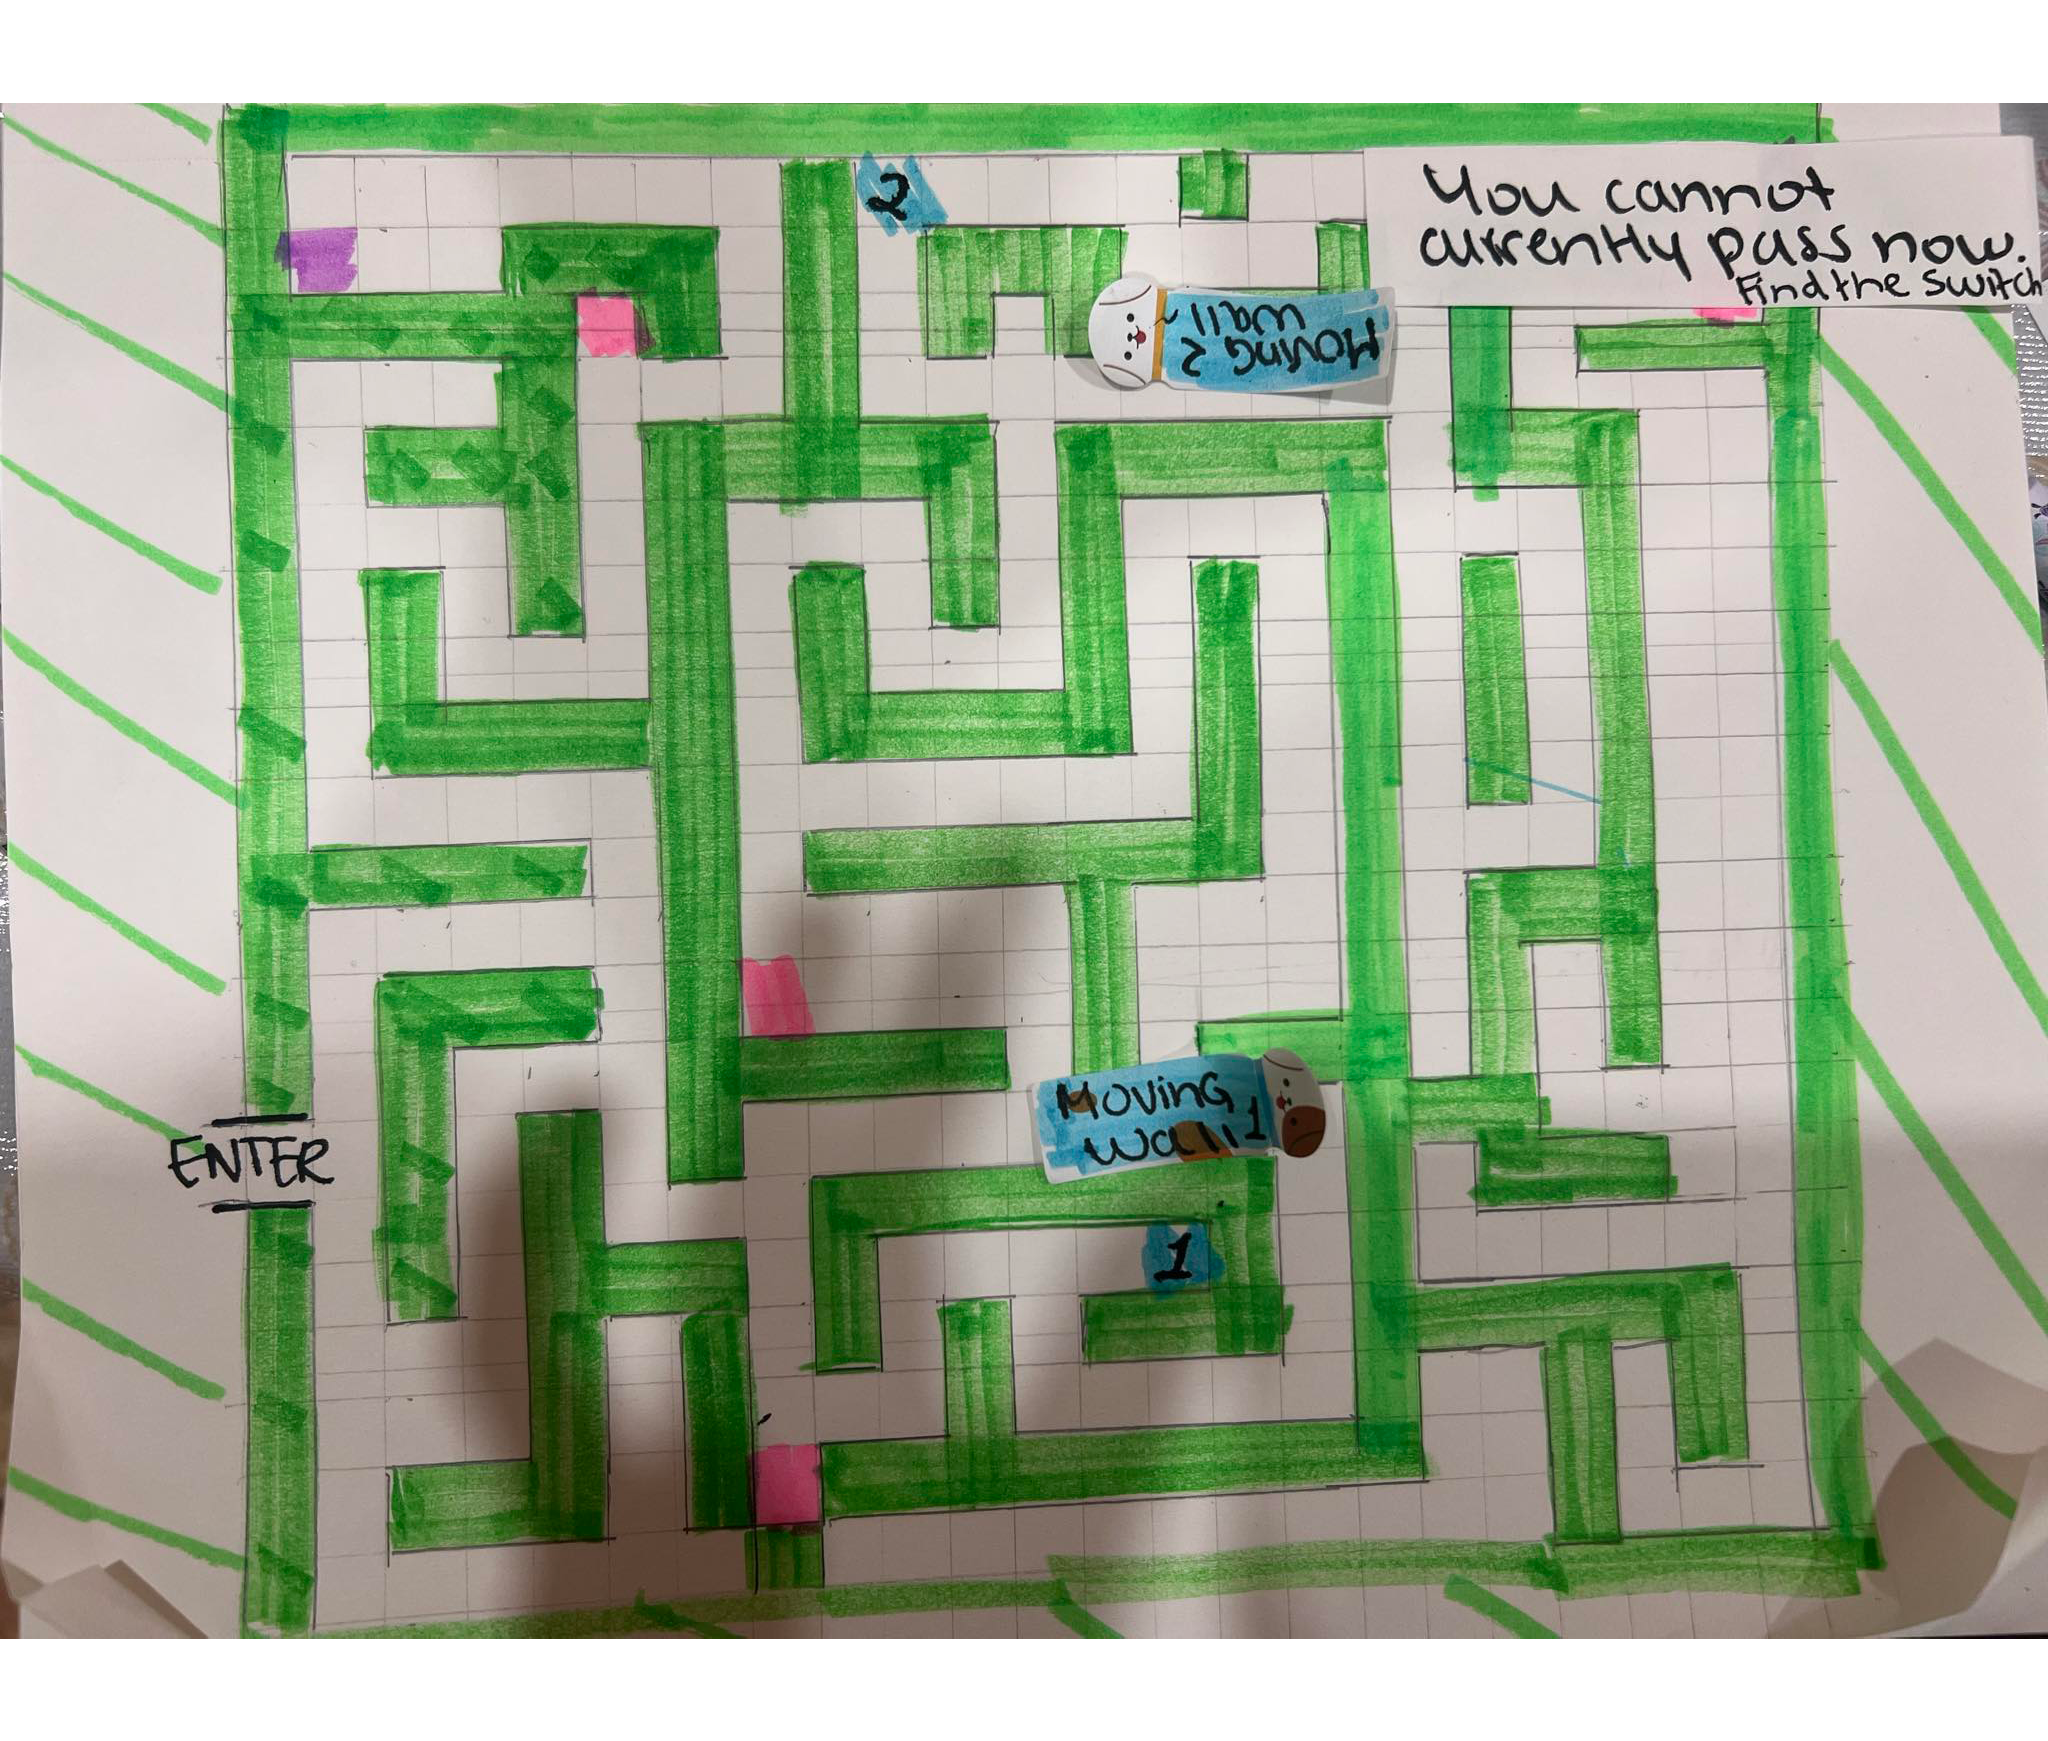 2
You cannot
currently pass now.
Find the switch
Moving 2
wall
ENTER
Moving
wall 1
1